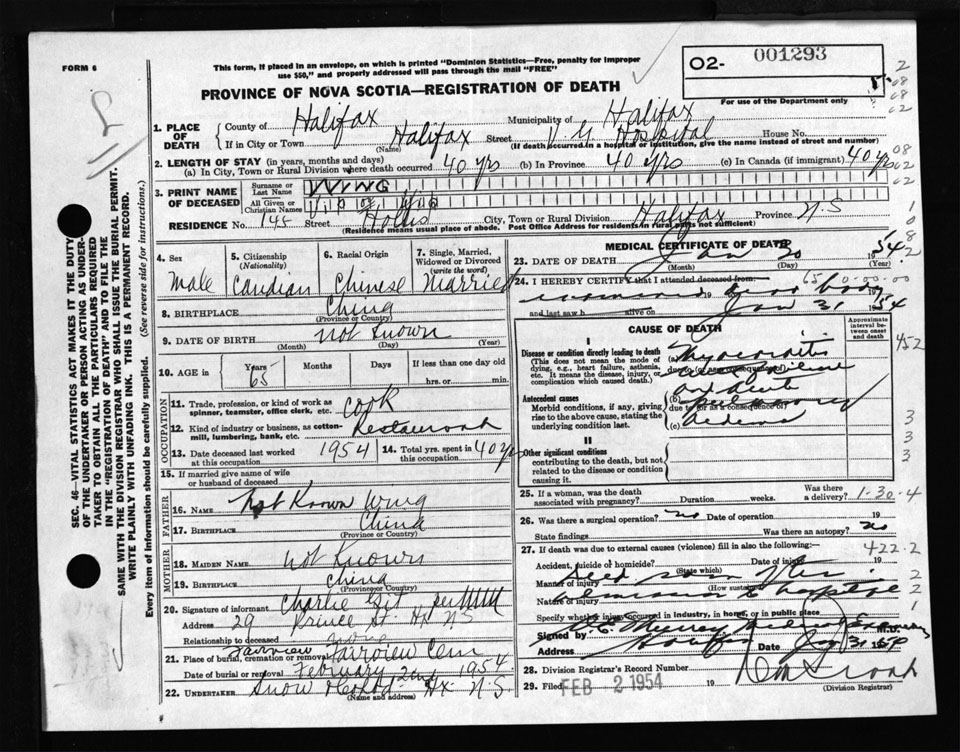 FORM 6
This form, if placed in an envelope, on which is printed "Dominion Statistics—Free, penalty for improper
use $50," and properly addressed will pass through the mail "FREE"
O2- 001293
For use of the Department only
PROVINCE OF NOVA SCOTIA—REGISTRATION OF DEATH
1. PLACE OF DEATH
County of Halifax Municipality of Halifax
If in City or Town Halifax (Name) Street V G Hospital House No.
(If death occurred in a hospital or institution, give the name instead of street and number)
2. LENGTH OF STAY (in years, months and days)
(a) In City, Town or Rural Division where death occurred 40 yrs (b) In Province 40 yrs (c) In Canada (if immigrant) 40 yrs
3. PRINT NAME OF DECEASED
Surname or Last Name WING
All Given or Christian Names
RESIDENCE No. 145 Street Hollis City, Town or Rural Division Halifax Province N.S
(Residence means usual place of abode. Post Office Address for residents in rural parts not sufficient)
4. Sex Male
5. Citizenship (Nationality) Candian
6. Racial Origin Chinese
7. Single, Married, Widowed or Divorced (write the word) Married
8. BIRTHPLACE China
(Province or Country)
9. DATE OF BIRTH not Known
(Month) (Day) (Year)
10. AGE in Years 65 Months Days If less than one day old hrs. or min.
OCCUPATION
11. Trade, profession, or kind of work as spinner, teamster, office clerk, etc. Cook
12. Kind of industry or business, as cotton-mill, lumbering, bank, etc. Restaurant
13. Date deceased last worked at this occupation 1954 14. Total yrs. spent in this occupation 40 yrs
15. If married give name of wife or husband of deceased
FATHER
16. NAME Not Known Wing
17. BIRTHPLACE China
(Province or Country)
MOTHER
18. MAIDEN NAME Not Known
19. BIRTHPLACE China
(Province or Country)
20. Signature of informant Charlie per
Address 29 Prince St. Hx NS
Relationship to deceased none
21. Place of burial, cremation or removal Fairview Fairview Cem
Date of burial or removal February 2nd 1954
22. UNDERTAKER Snow Hx. N.S.
(Name and address)
MEDICAL CERTIFICATE OF DEATH
23. DATE OF DEATH Jan 30 1954
(Month) (Day) (Year)
24. I HEREBY CERTIFY that I attended deceased from: 19
and last saw h alive on Jan 31 1954
CAUSE OF DEATH
Approximate interval between onset and death
I
Disease or condition directly leading to death (a)
(This does not mean the mode of dying, e.g., heart failure, asthenia, etc. It means the disease, injury, or complication which caused death.)
due to (or as a consequence of)
Antecedent causes (b)
Morbid conditions, if any, giving rise to the above cause, stating the underlying condition last.
due to (or as a consequence of)
(c)
pulmonary
II
Other significant conditions
contributing to the death, but not related to the disease or condition causing it.
25. If a woman, was the death associated with pregnancy? Duration weeks. Was there a delivery? 1-30-4
26. Was there a surgical operation? no Date of operation 19
State findings Was there an autopsy? no
27. If death was due to external causes (violence) fill in also the following:— 422.2
Accident, suicide or homicide? (State which) Date of injury 19
Manner of injury (How sustained)
Nature of injury admission to hospital
Specify whether injury occurred in industry, in home, or in public place
Signed by M.D.
Address Halifax Date
28. Division Registrar's Record Number
29. Filed FEB 2 1954 19
(Division Registrar)
SEC. 46—VITAL STATISTICS ACT MAKES IT THE DUTY
OF THE UNDERTAKER OR PERSON ACTING AS UNDER-
TAKER TO OBTAIN ALL THE PARTICULARS REQUIRED
IN THE "REGISTRATION OF DEATH" AND TO FILE THE
SAME WITH THE DIVISION REGISTRAR WHO SHALL ISSUE THE BURIAL PERMIT.
WRITE PLAINLY WITH UNFADING INK. THIS IS A PERMANENT RECORD.
Every item of information should be carefully supplied. (See reverse side for instructions.)
452